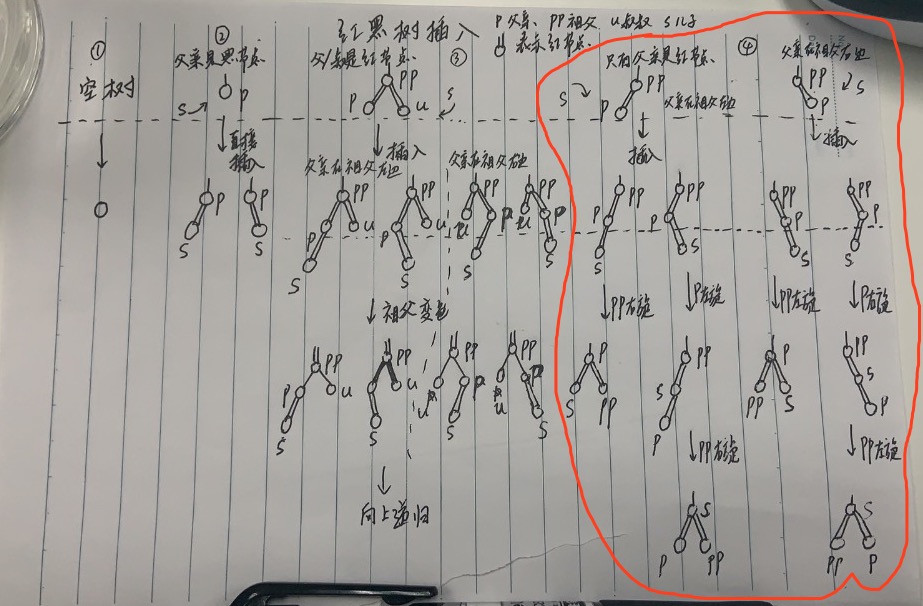 红黑树插入
P父亲、PP祖父 u叔叔 S儿子
表示红节点.
①
空树
②
父亲是黑节点
S
P
直接
插入
P
S
P
S
③
父/叔是红节点.
PP
P
u
S
插入
父亲在祖父左边
父亲在祖父右边
PP
P
u
S
PP
P
u
S
PP
P
u
S
PP
P
u
S
祖父变色
PP
P
u
S
PP
S
u
PP
P
S
PP
P
u
S
向上递归
④
只有父亲是红节点.
S
PP
P
父亲在祖父左边
插入
PP
P
S
PP
P
S
PP右旋
P左旋
P
S
PP
PP
S
P
PP右旋
S
P
PP
父亲在祖父右边
PP
P
S
插入
PP
P
S
PP
P
S
PP左旋
P右旋
P
PP
S
PP
S
P
PP左旋
S
PP
P